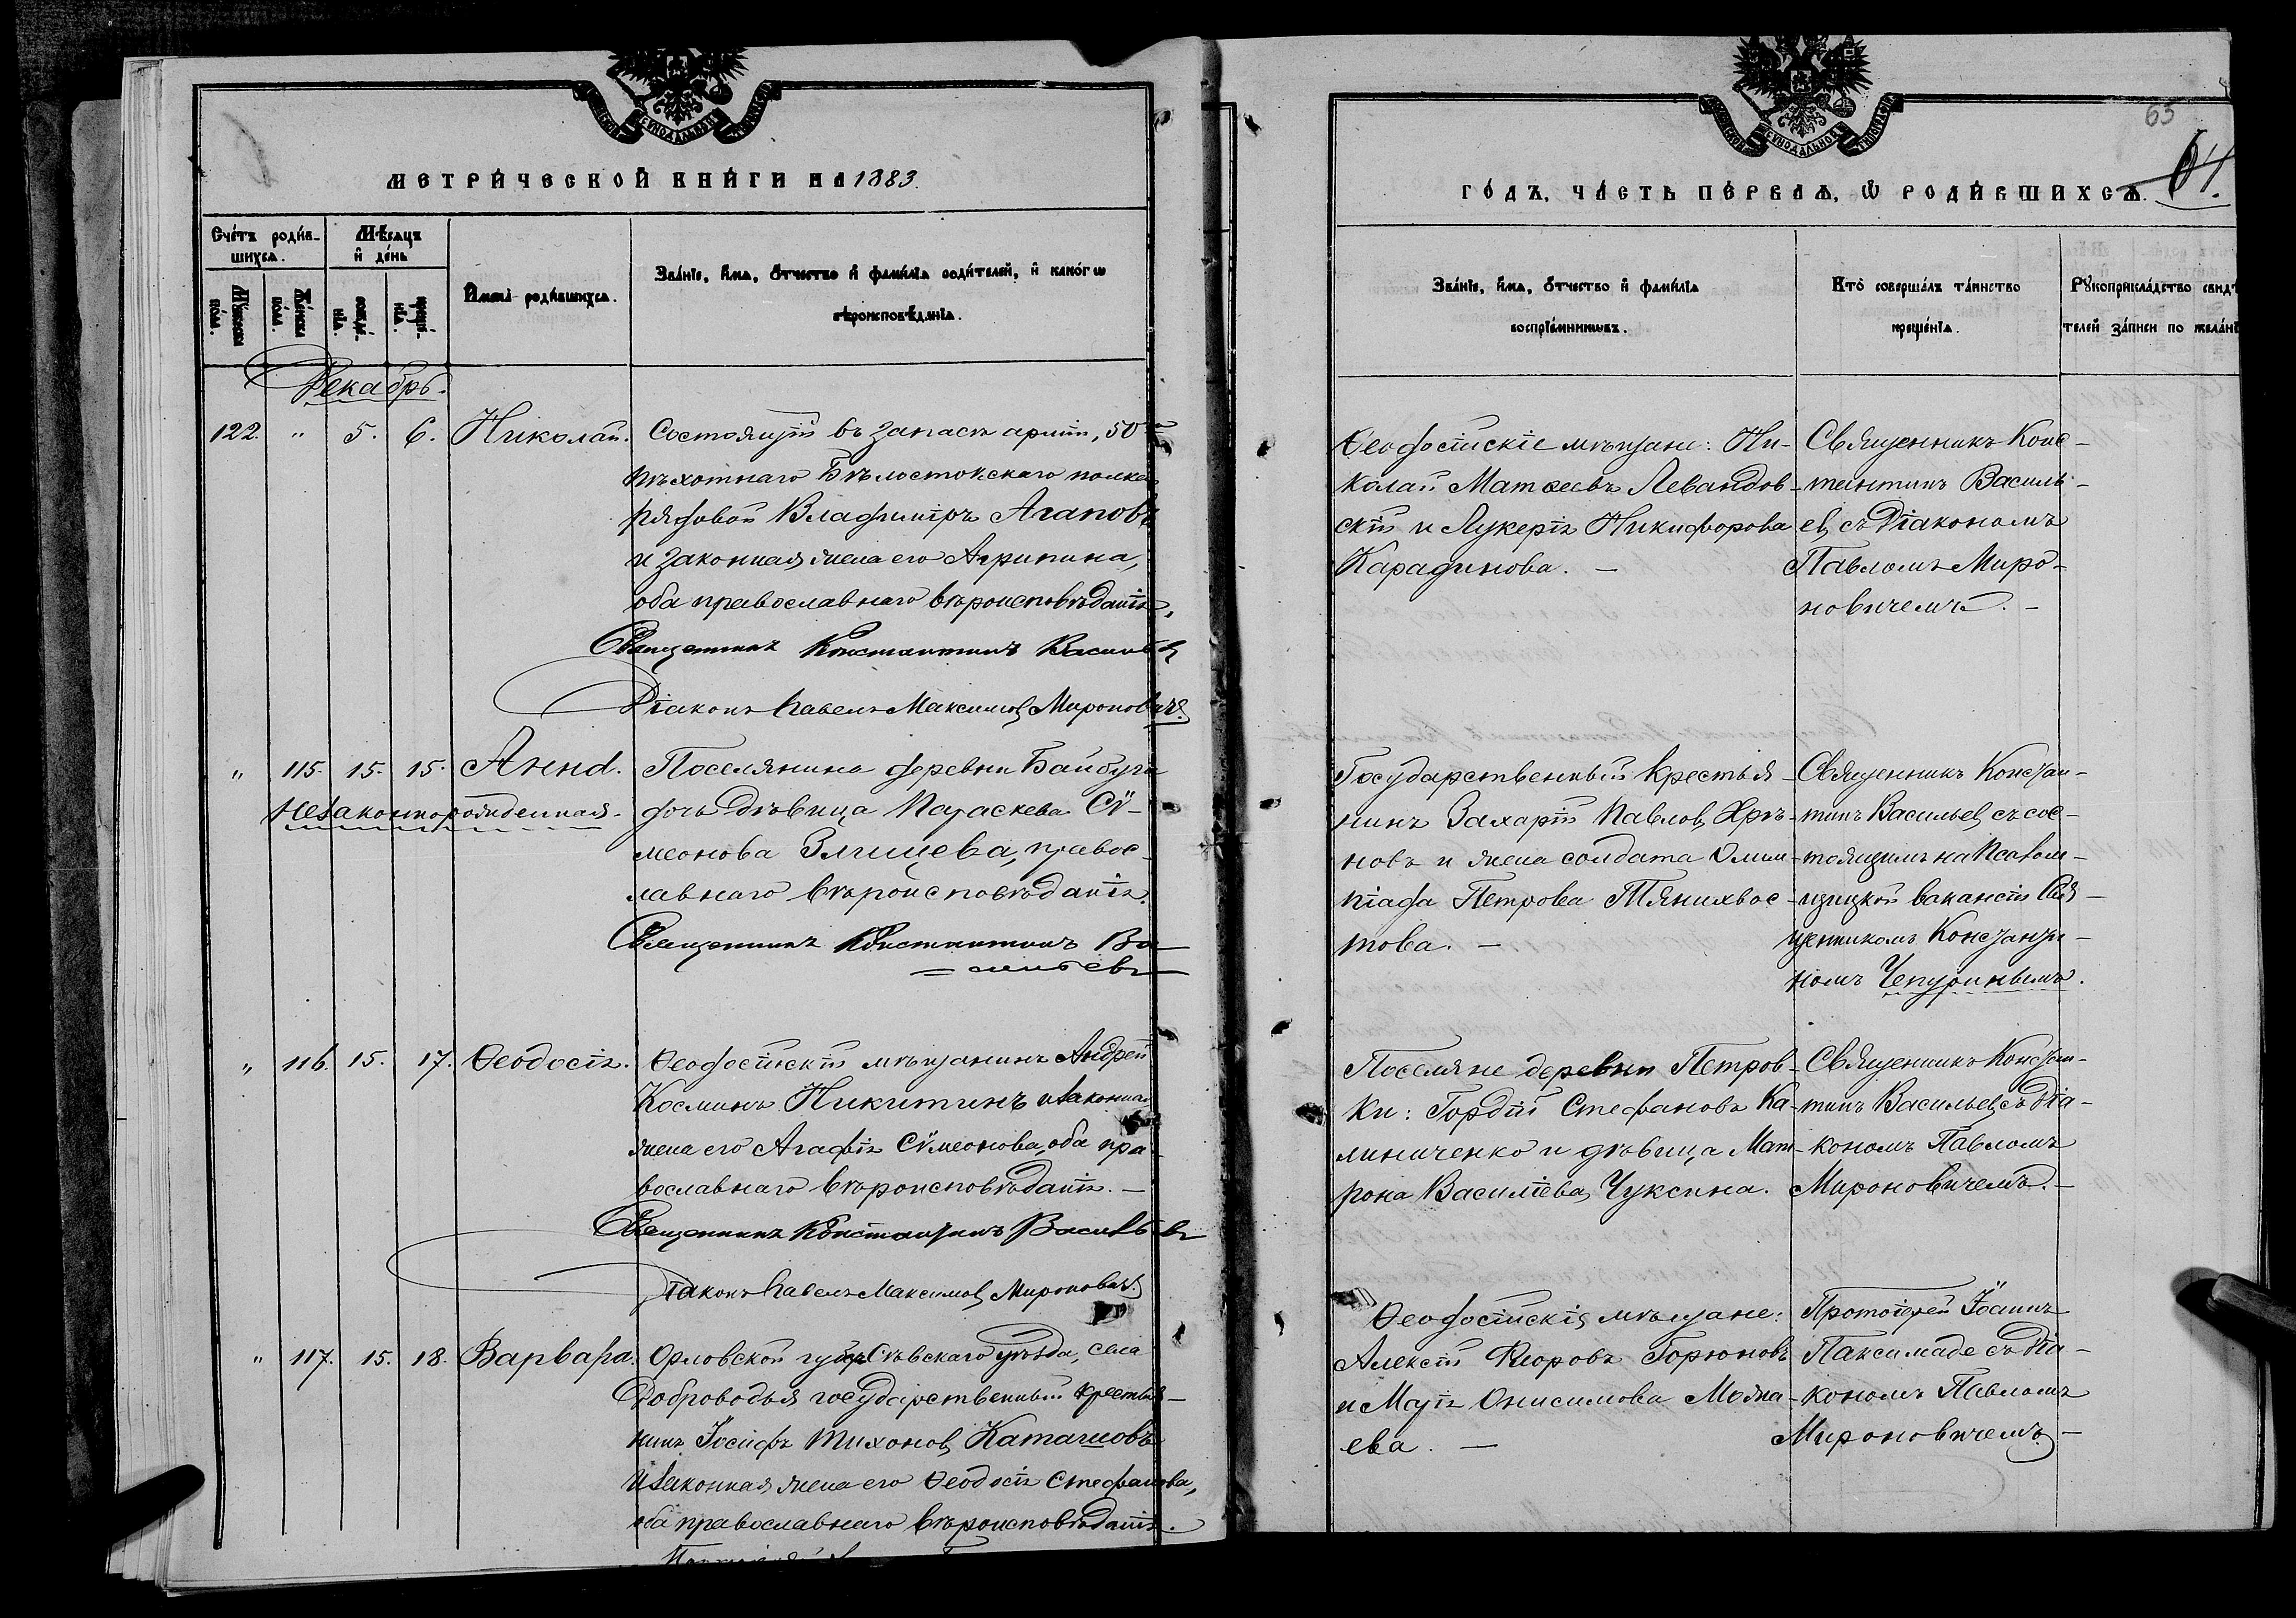 МЕТРИЧЕСКОЙ КНИГИ НА 1883.
Счетъ родив-
шихся.
Мѣсяцъ
и день
Мужеска
пола.
Женска
пола.
рожде-
нія.
креще-
нія.
Имена родившихся.
Званіе, имя, отчество и фамилія родителей, и какогѡ
вѣроисповѣданія.
Декабрь.
122. " 5. 6. Николай. Состоящій въ запасѣ арміи, 50го
пѣхотнаго Бѣлостокскаго полка
рядовой Владиміръ Агаповъ
и законная жена его Агрипина,
оба православнаго вѣроисповѣданія.
Священникъ Константинъ Васильевъ
Діаконъ Павелъ Максимовъ Мироновичъ.
" 115. 15. 15. Анна. Поселянина деревни Байбуги
Незаконнорожденная. дочь дѣвица Параскева Сѵ-
меонова, правос-
лавнаго вѣроисповѣданія.
Священникъ Константинъ Ва-
сильевъ
" 116. 15. 17. Ѳеодосія. Ѳеодосійскій мѣщанинъ Андрей
Косминъ Никитинъ и законная
жена его Агафія Сѵмеонова, оба пра-
вославнаго вѣроисповѣданія. —
Священникъ Константинъ Васильевъ
Діаконъ Павелъ Максимовъ Мироновичъ.
" 117. 15. 18. Варвара. Орловской губер. Сѣвскаго уѣзда, села
Доброводья государственный крестья-
нинъ Іосифъ Тихоновъ Каташовъ
и законная жена его Ѳеодосія Стефанова,
оба православнаго вѣроисповѣданія.
65
64.
ГОДЪ, ЧАСТЬ ПЕРВАЯ, Ѡ РОДИВШИХСЯ.
Званіе, имя, отчество и фамилія
воспріемниковъ.
Кто совершалъ таинство
крещенія.
Рукоприкладство свидѣ
телей записи по желанію
Ѳеодосійскіе мѣщане: Ни-
колай Матвеевъ Левандов-
скій и Лукерія Никифорова
Карадинова. —
Священникъ Конс-
тантинъ Василь-
евъ съ Діакономъ
Павломъ Миро-
новичемъ. —
Государственный крестья-
нинъ Захарій Павловъ Хрѣ-
новъ и жена солдата Олим-
піада Петрова Тянихвос-
това. —
Священникъ Констан-
тинъ Васильевъ съ сос-
тоящимъ на Псалом-
щицкой вакансіи Свя-
щенникомъ Константи-
номъ Чепуринымъ.
Поселяне деревни Петров-
ки: Гордій Стефановъ Ка-
линиченко и дѣвица Мат-
рона Василіева Чуксина.
Священникъ Констан-
тинъ Васильевъ съ Діа-
кономъ Павломъ
Мироновичемъ. —
Ѳеодосійскія мѣщане:
Алексій Флоровъ Горюновъ
и Марія Онисимова Можа-
ева. —
Протоіерей Іоаннъ
Паксимаде съ Діа-
кономъ Павломъ
Мироновичемъ. —